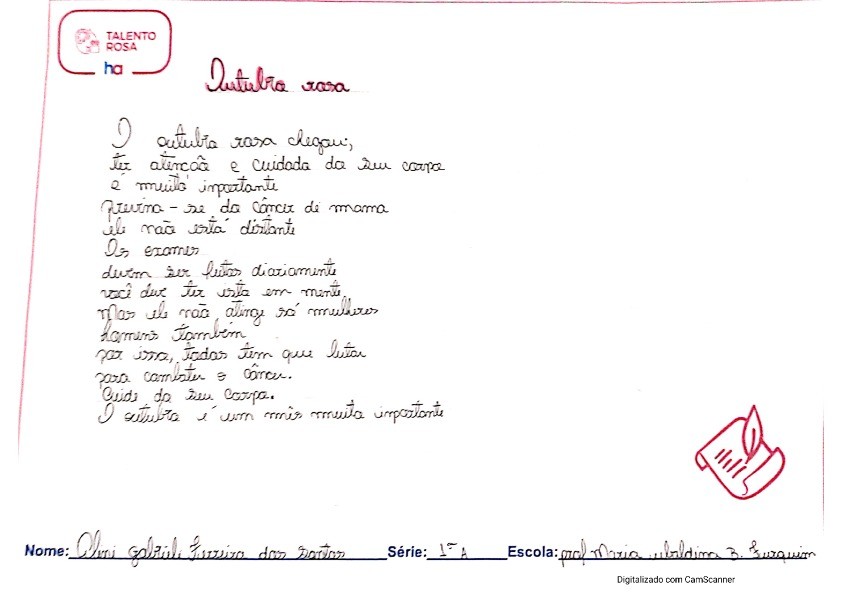 TALENTO
ROSA
ha
Outubro rosa
O outubro rosa chegou;
ter atenção e cuidado do seu corpo
é muito inportante
previna-se do câncer de mama
ele não está distante
Os exames
devem ser feitos diariamente
você deve ter isto em mente
Mas ele não atinge só mulheres
homens também
por isso, todos tem que lutar
para combater o câncer.
Cuide do seu corpo.
O outubro é um mês muito inportante
Nome: Gabriele Ferreira dos Santos Série: 1º A Escola: prof Maria Ubaldina B. Furquim
Digitalizado com CamScanner